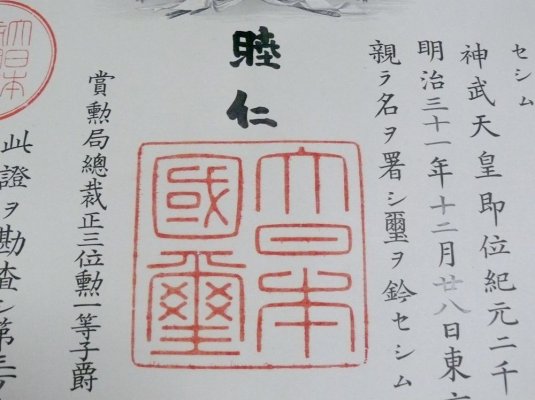 セシム
神武天皇即位紀元二千
明治三十一年十二月廿八日東
親ラ名ヲ署シ璽ヲ鈐セシム
睦仁
大日本
國璽
賞勲局總裁正三位勲一等子爵
此證ヲ勘査シ第三
大日本